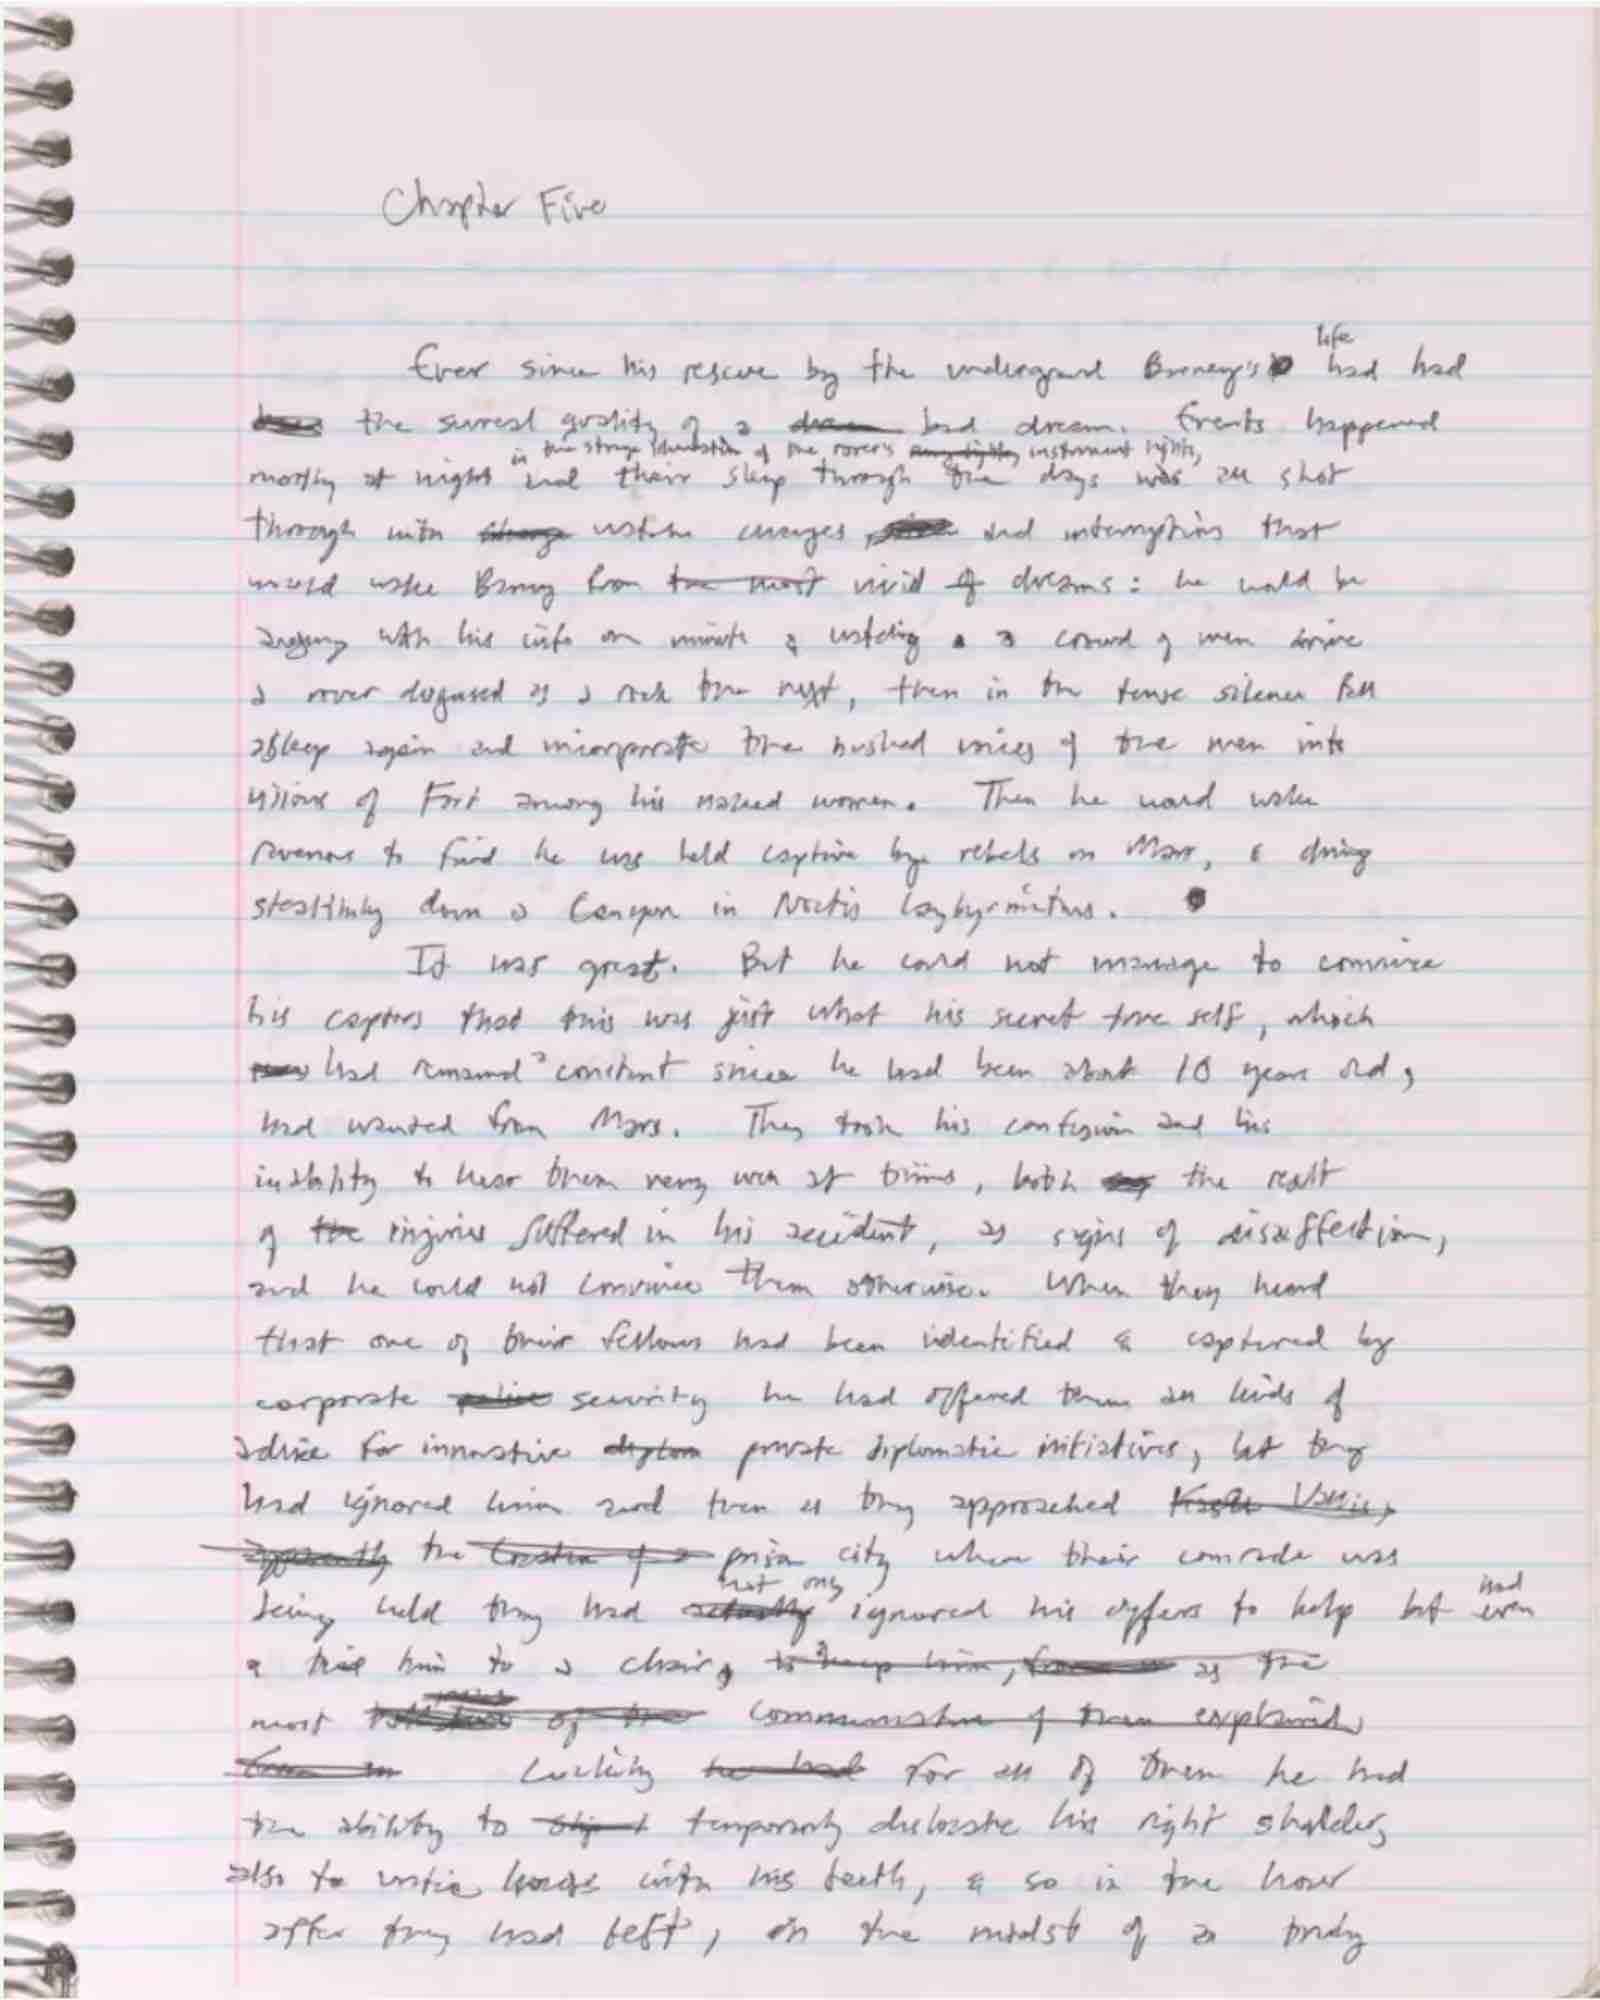 Chapter Five
life
Ever since his rescue by the underground Barney's had had
the surreal quality of a dream bad dream. Events happened
in the strange illumination of the rover's instrument lights,
mostly at night and their sleep through the days was all shot
through with strange watch changes and interruptions that
would wake Barney from the most vivid of dreams: he would be
arguing with his wife one minute & watching a crowd of men drive
a rover disguised as a rock the next, then in the tense silence fall
asleep again and incorporate the hushed voices of the men into
visions of Fort among his naked women. Then he would wake
to find he was held captive by rebels on Mars, & driving
stealthily down a Canyon in Noctis Laybyrinthus.
It was great. But he could not manage to convince
his captors that this was just what his secret true self, which
had remained constant since he had been about 10 years old,
had wanted from Mars. They took his confusion and his
inability to hear them very well at times, both the result
of the injuries suffered in his accident, as signs of disaffection,
and he could not convince them otherwise. When they heard
that one of their fellows had been identified & captured by
corporate police security he had offered them all kinds of
advice for innovative diplom private diplomatic initiatives, but they
had ignored him and then as they approached
apparently the location of a prison city where their comrade was
not only had
being held they had actually ignored his offers to help but even
& tied him to a chair, to keep him, as the
most of the communicative of them explained
Luckily he had for all of them he had
the ability to temporarily dislocate his right shoulder,
also to untie knots with his teeth, & so in the hour
after they had left, in the midst of a